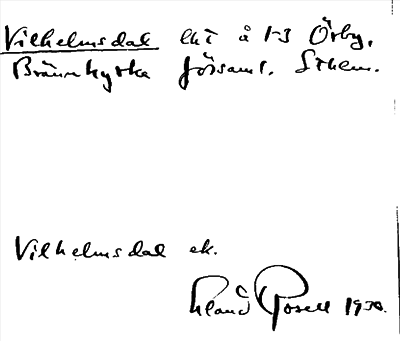 Vilhelmsdal lht å 1-3 Örby,
Brännkyrka församl. Sthlm.
Vilhelmsdal ek.
Rosell 1930.